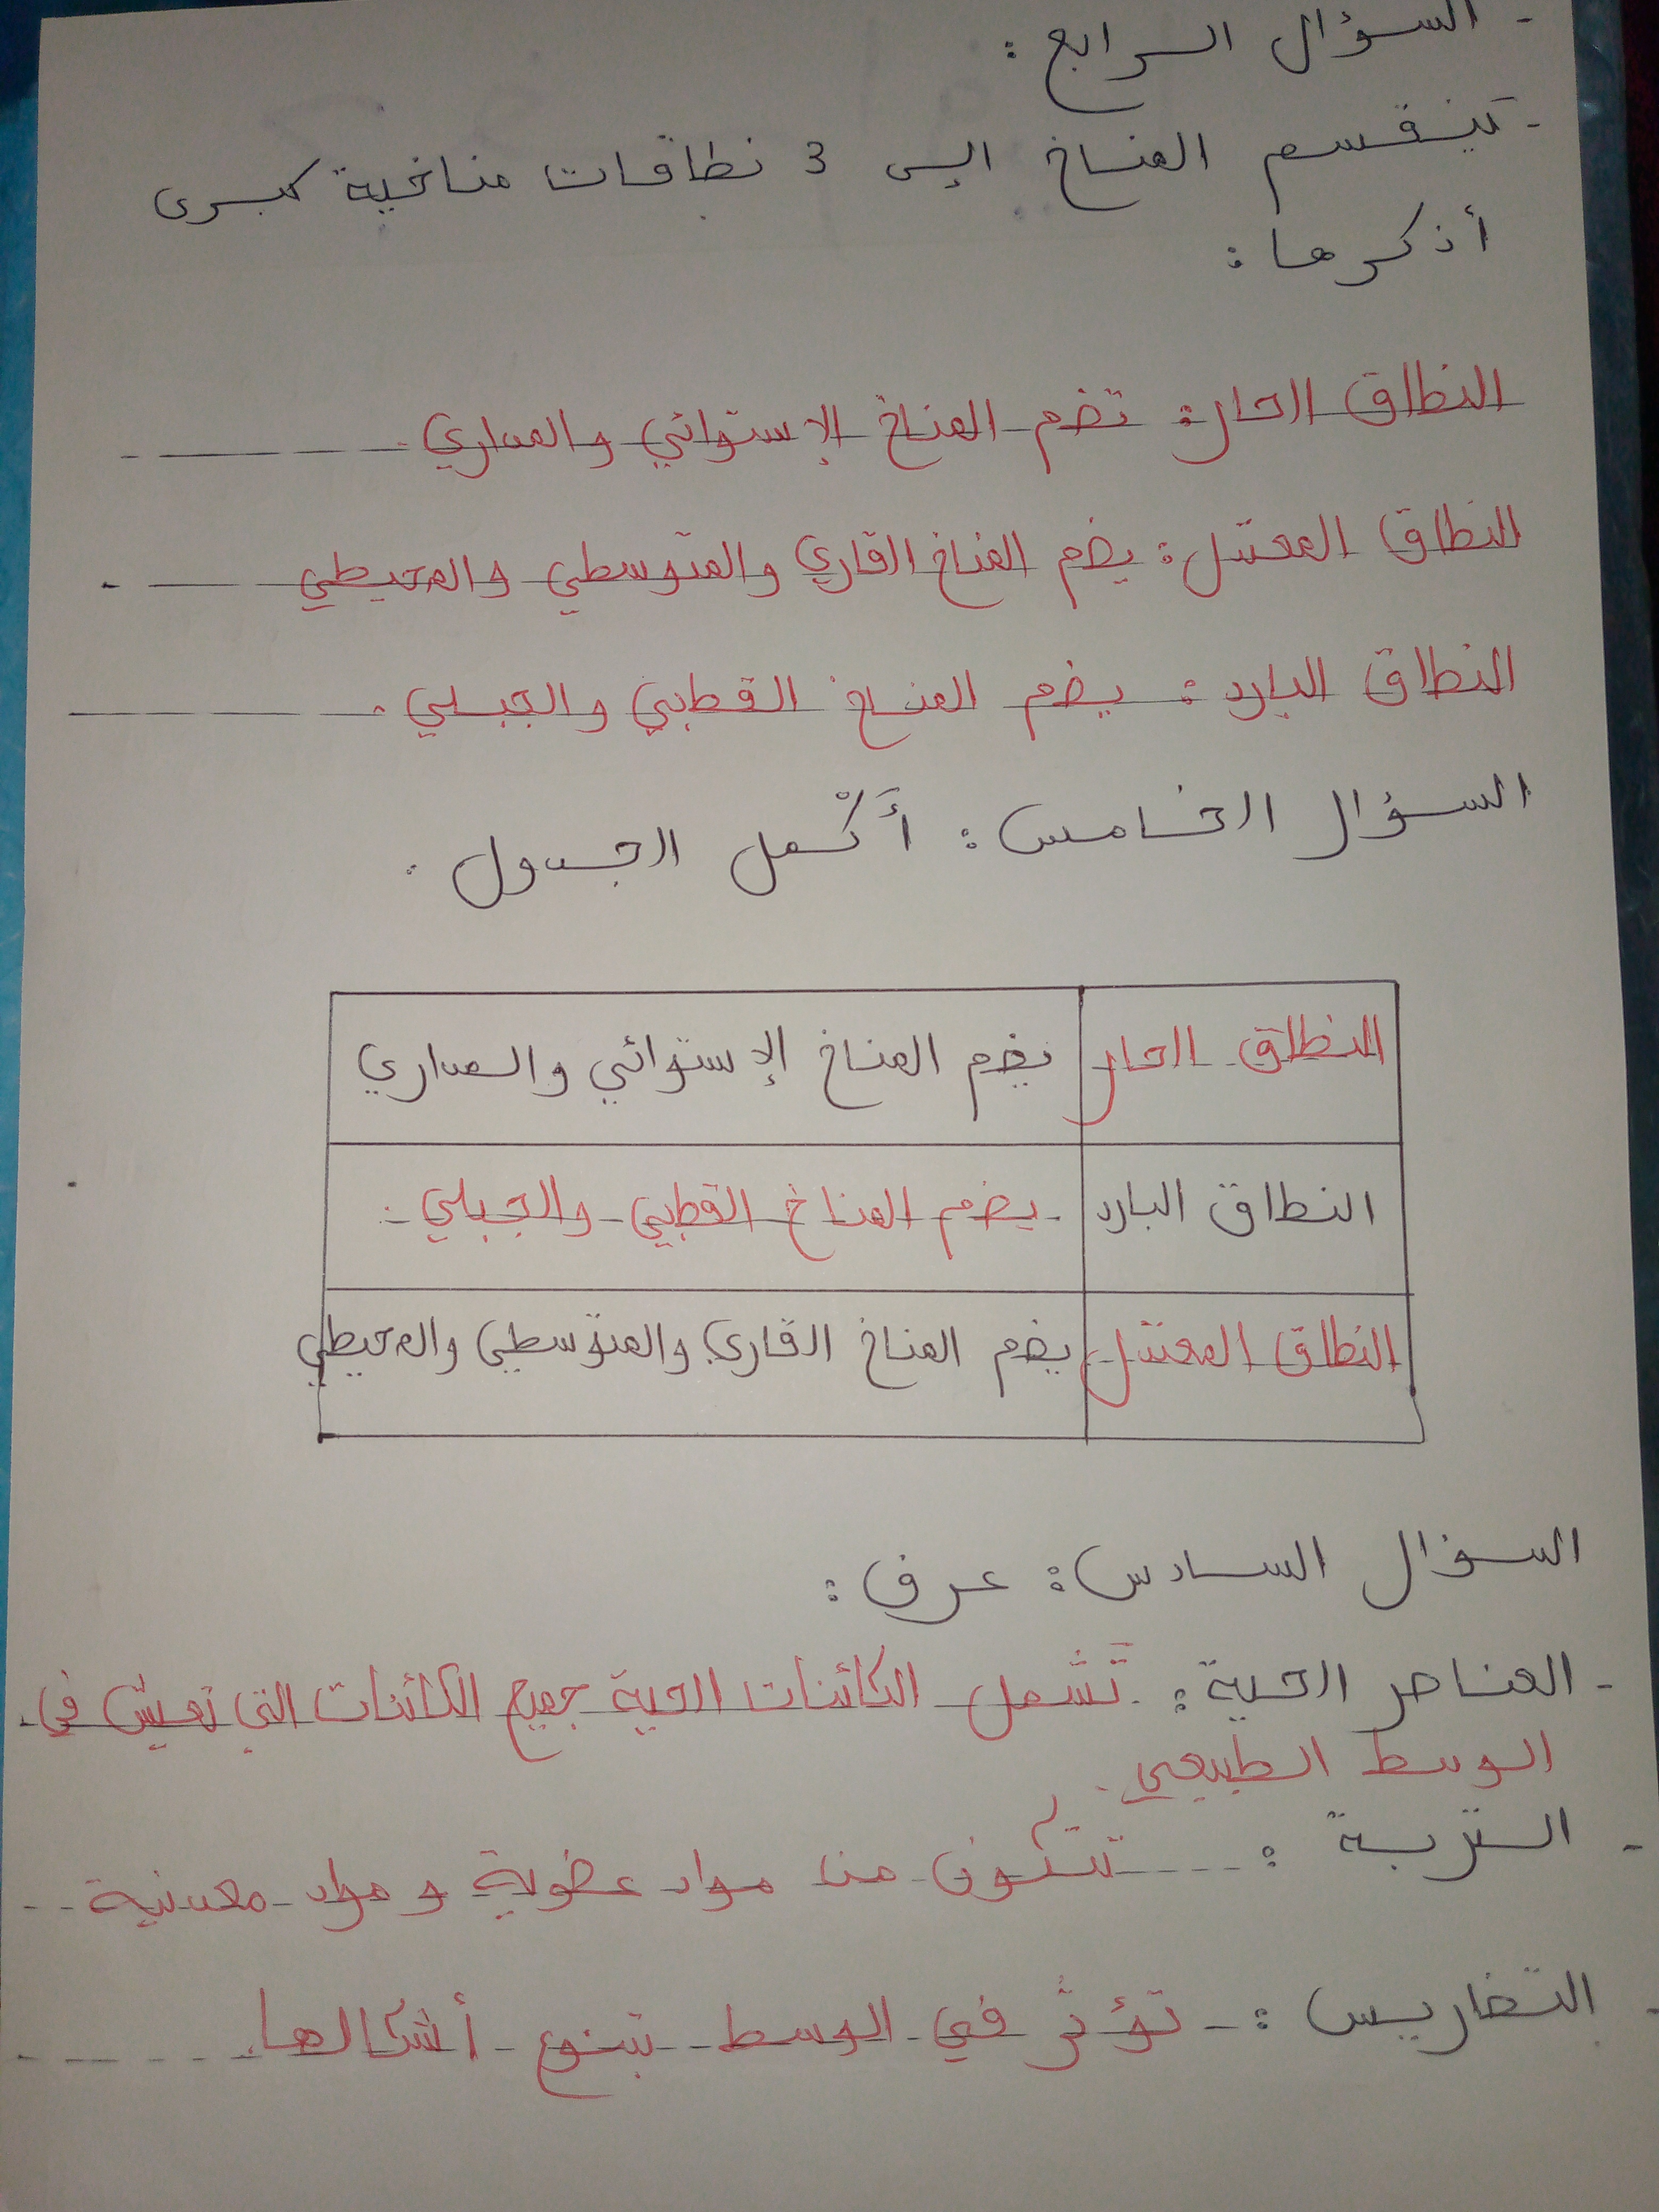 - السؤال الرابع :
- تينقسم المناخ إلى 3 نطاقات مناخية كبرى
أذكرها :
النطاق الحار : تضم المناخ الإستوائي والمداري .
النطاق المعتدل : يضم المناخ القاري والمتوسطي والمحيطي
النطاق البارد : يضم المناخ القطبي والجبلي .
السؤال الخامس : أَكْمل الجدول .
النطاق الحار يضم المناخ الإستوائي والمداري
النطاق البارد يضم المناخ القطبي والجبلي .
النطاق المعتدل يضم المناخ القاري والمتوسطي والمحيطي
السؤال السادس : عرف :
- العناصر الحية : تَشمل الكائنات الحية جميع الكائنات التي تعيش في
الوسط الطبيعي .
- التربة : تتكون من مواد عضوية و مواد معدنية
- التضاريس : تؤثر في الوسط بتنوع أشكالها .